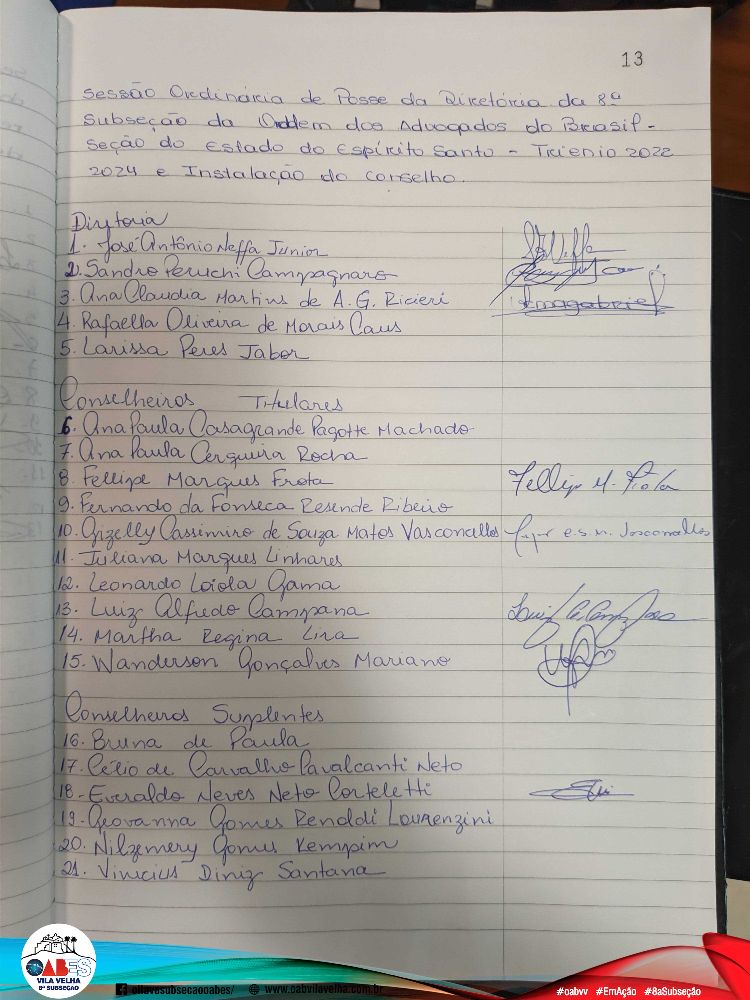 13
Sessão Ordinária de Posse da Diretória da 8ª
Subseção da Ordem dos Advogados do Brasil -
Seção do Estado do Espírito Santo - Triênio 2022
2024 e Instalação do Conselho.
Diretoria
1. José Antônio Neffa Junior
2. Sandro Peruchi Campagnaro
3. Ana Claudia Martins de A. G. Ricieri
4. Rafaella Oliveira de Morais Caus
5. Larissa Peres Jabor
Conselheiros Titulares
6. Ana Paula Casagrande Pagotte Machado
7. Ana Paula Cerqueira Rocha
8. Fellipe Marques Frota Fellip M. Frota
9. Fernando da Fonseca Resende Ribeiro
10. Gizelly Cassimiro de Souza Matos Vasconcellos
11. Juliana Marques Linhares
12. Leonardo Loiola Gama
13. Luiz Alfredo Campana
14. Martha Regina Lira
15. Wanderson Gonçalves Mariano
Conselheiros Suplentes
16. Bruna de Paula
17. Célio de Carvalho Cavalcanti Neto
18. Everaldo Neves Neto Corteletti
19. Geovanna Gomes Renoldi Lourenzini
20. Nilzemery Gomes Kempim
21. Vinicius Diniz Santana
OABES
VILA VELHA
8ª SUBSEÇÃO
www.oabvilavelha.com.br
#oabvv #EmAção #8aSubseção